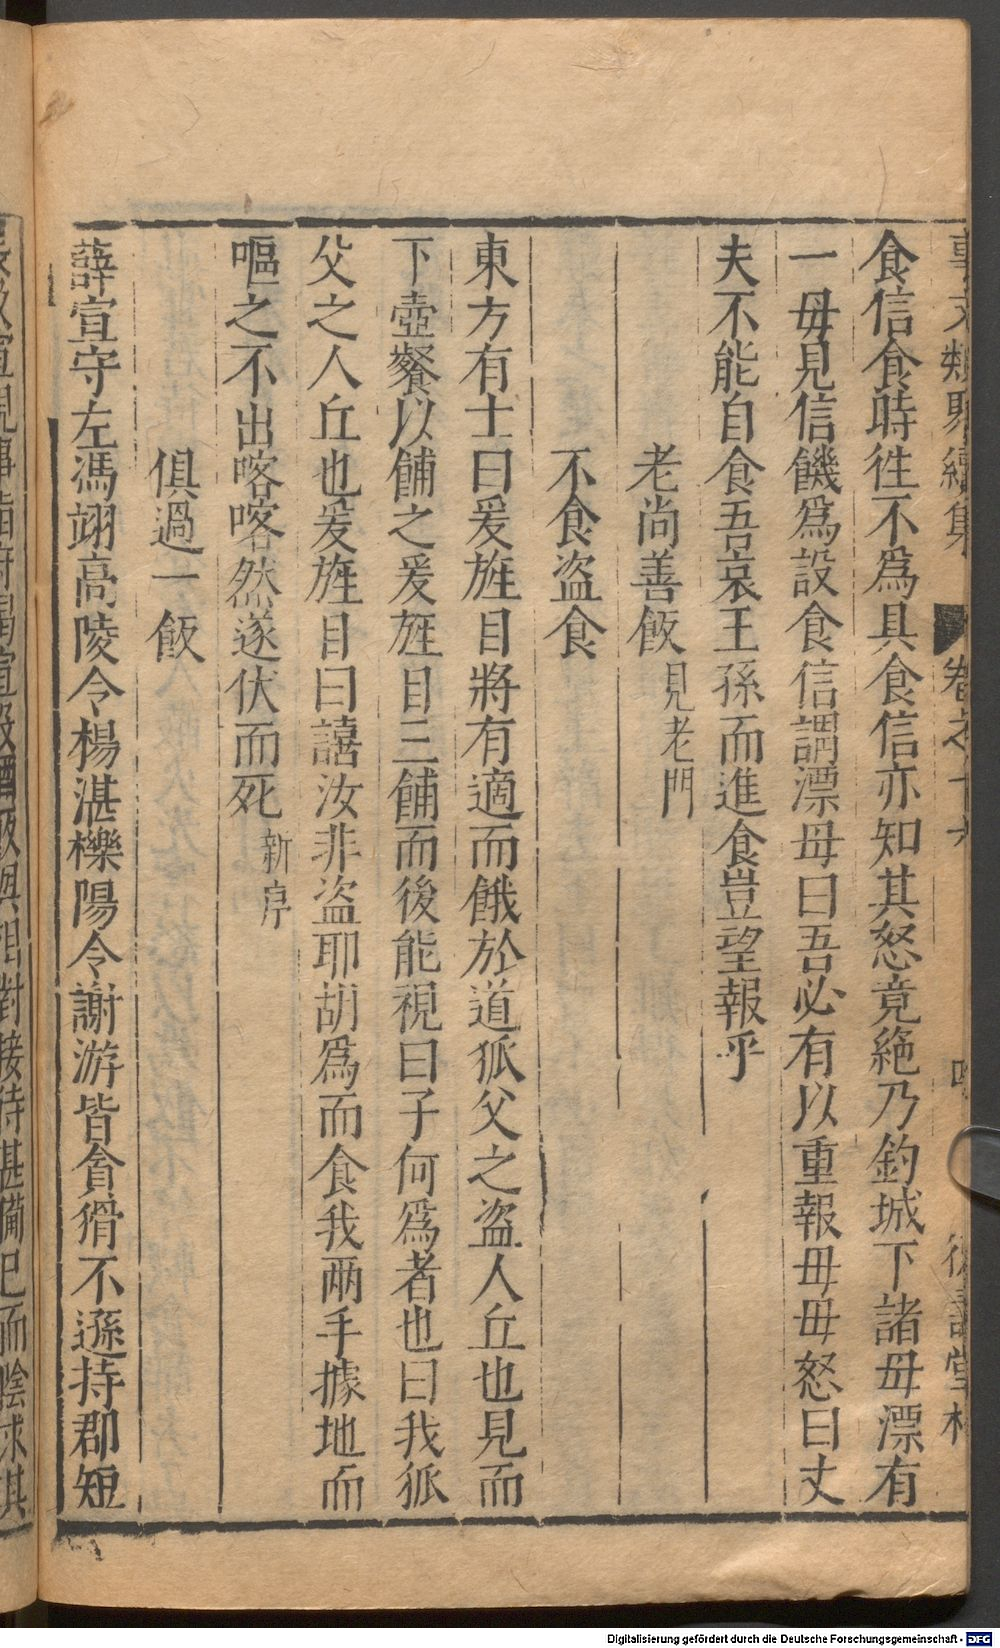 食信食時徃不爲具食信亦知其怒竟絶乃釣城下諸毋漂有
一毋見信饑爲設食信謂漂毋曰吾必有以重報毋毋怒曰丈
夫不能自食吾哀王孫而進食豈望報乎
老尚善飯見老門
不食盜食
東方有士曰爰旌目將有適而餓於道狐父之盜人丘也見而
下壺餐以餔之爰旌目三餔而後能視曰子何爲者也曰我狐
父之人丘也爰旌目曰譆汝非盜耶胡爲而食我兩手據地而
嘔之不出喀喀然遂伏而死新序
俱過一飯
薛宣守左馮翊高陵令楊湛櫟陽令謝游皆貪猾不遜持郡短
Digitalisierung gefördert durch die Deutsche Forschungsgemeinschaft - DFG